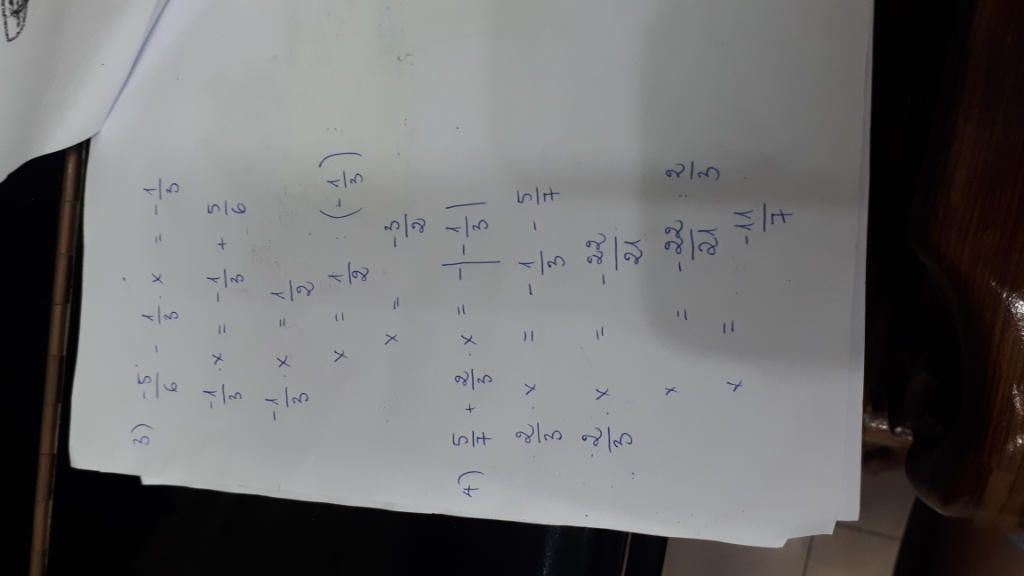 3) -5/6 - 1/3 . x = -1/3
-1/3 . x = -1/3 + 5/6
-1/3 . x = 1/2
x = 1/2 : (-1/3)
x = -3/2
4) 5/7 + 2/3 . x = -|-1/3|
2/3 . x = -1/3 - 5/7
2/3 . x = -22/21
x = -22/21 : 2/3
x = -11/7